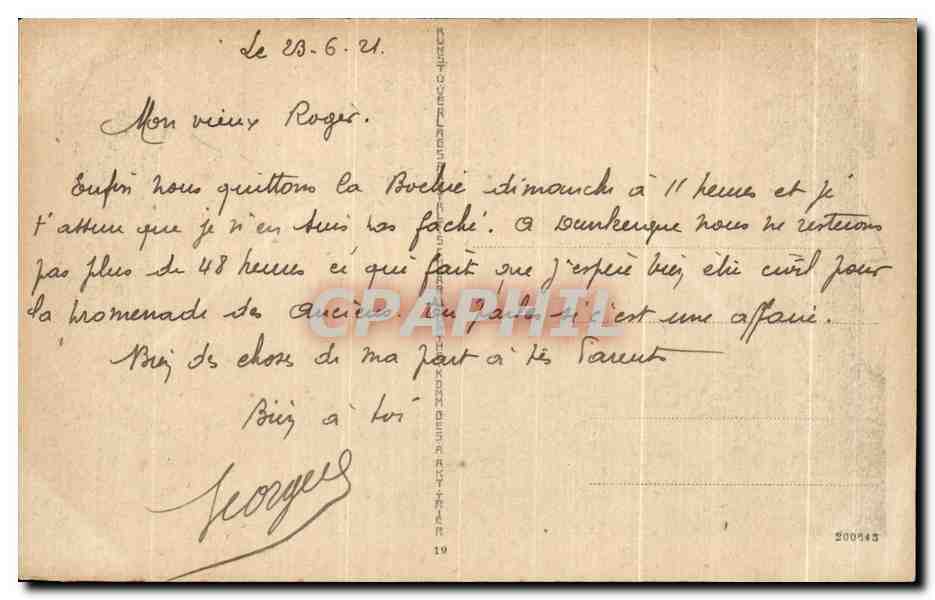 Le 23-6-21.
Mon vieux Roger.
Enfin nous quittons la Bochie dimanche à 11 heures et je
t'assure que je n'en suis pas faché. A Dunkerque nous ne resterons
pas plus de 48 heures ce qui fait que j'espère bien être civil pour
la promenade des Anciens. Tu parles si c'est une affaire.
Bien des choses de ma part à tes Parents
Bien à toi
Georges
CPAPHIL
KUNST U. VERLAGSANST
KOMM DES A AKT. TRIER
19
200643